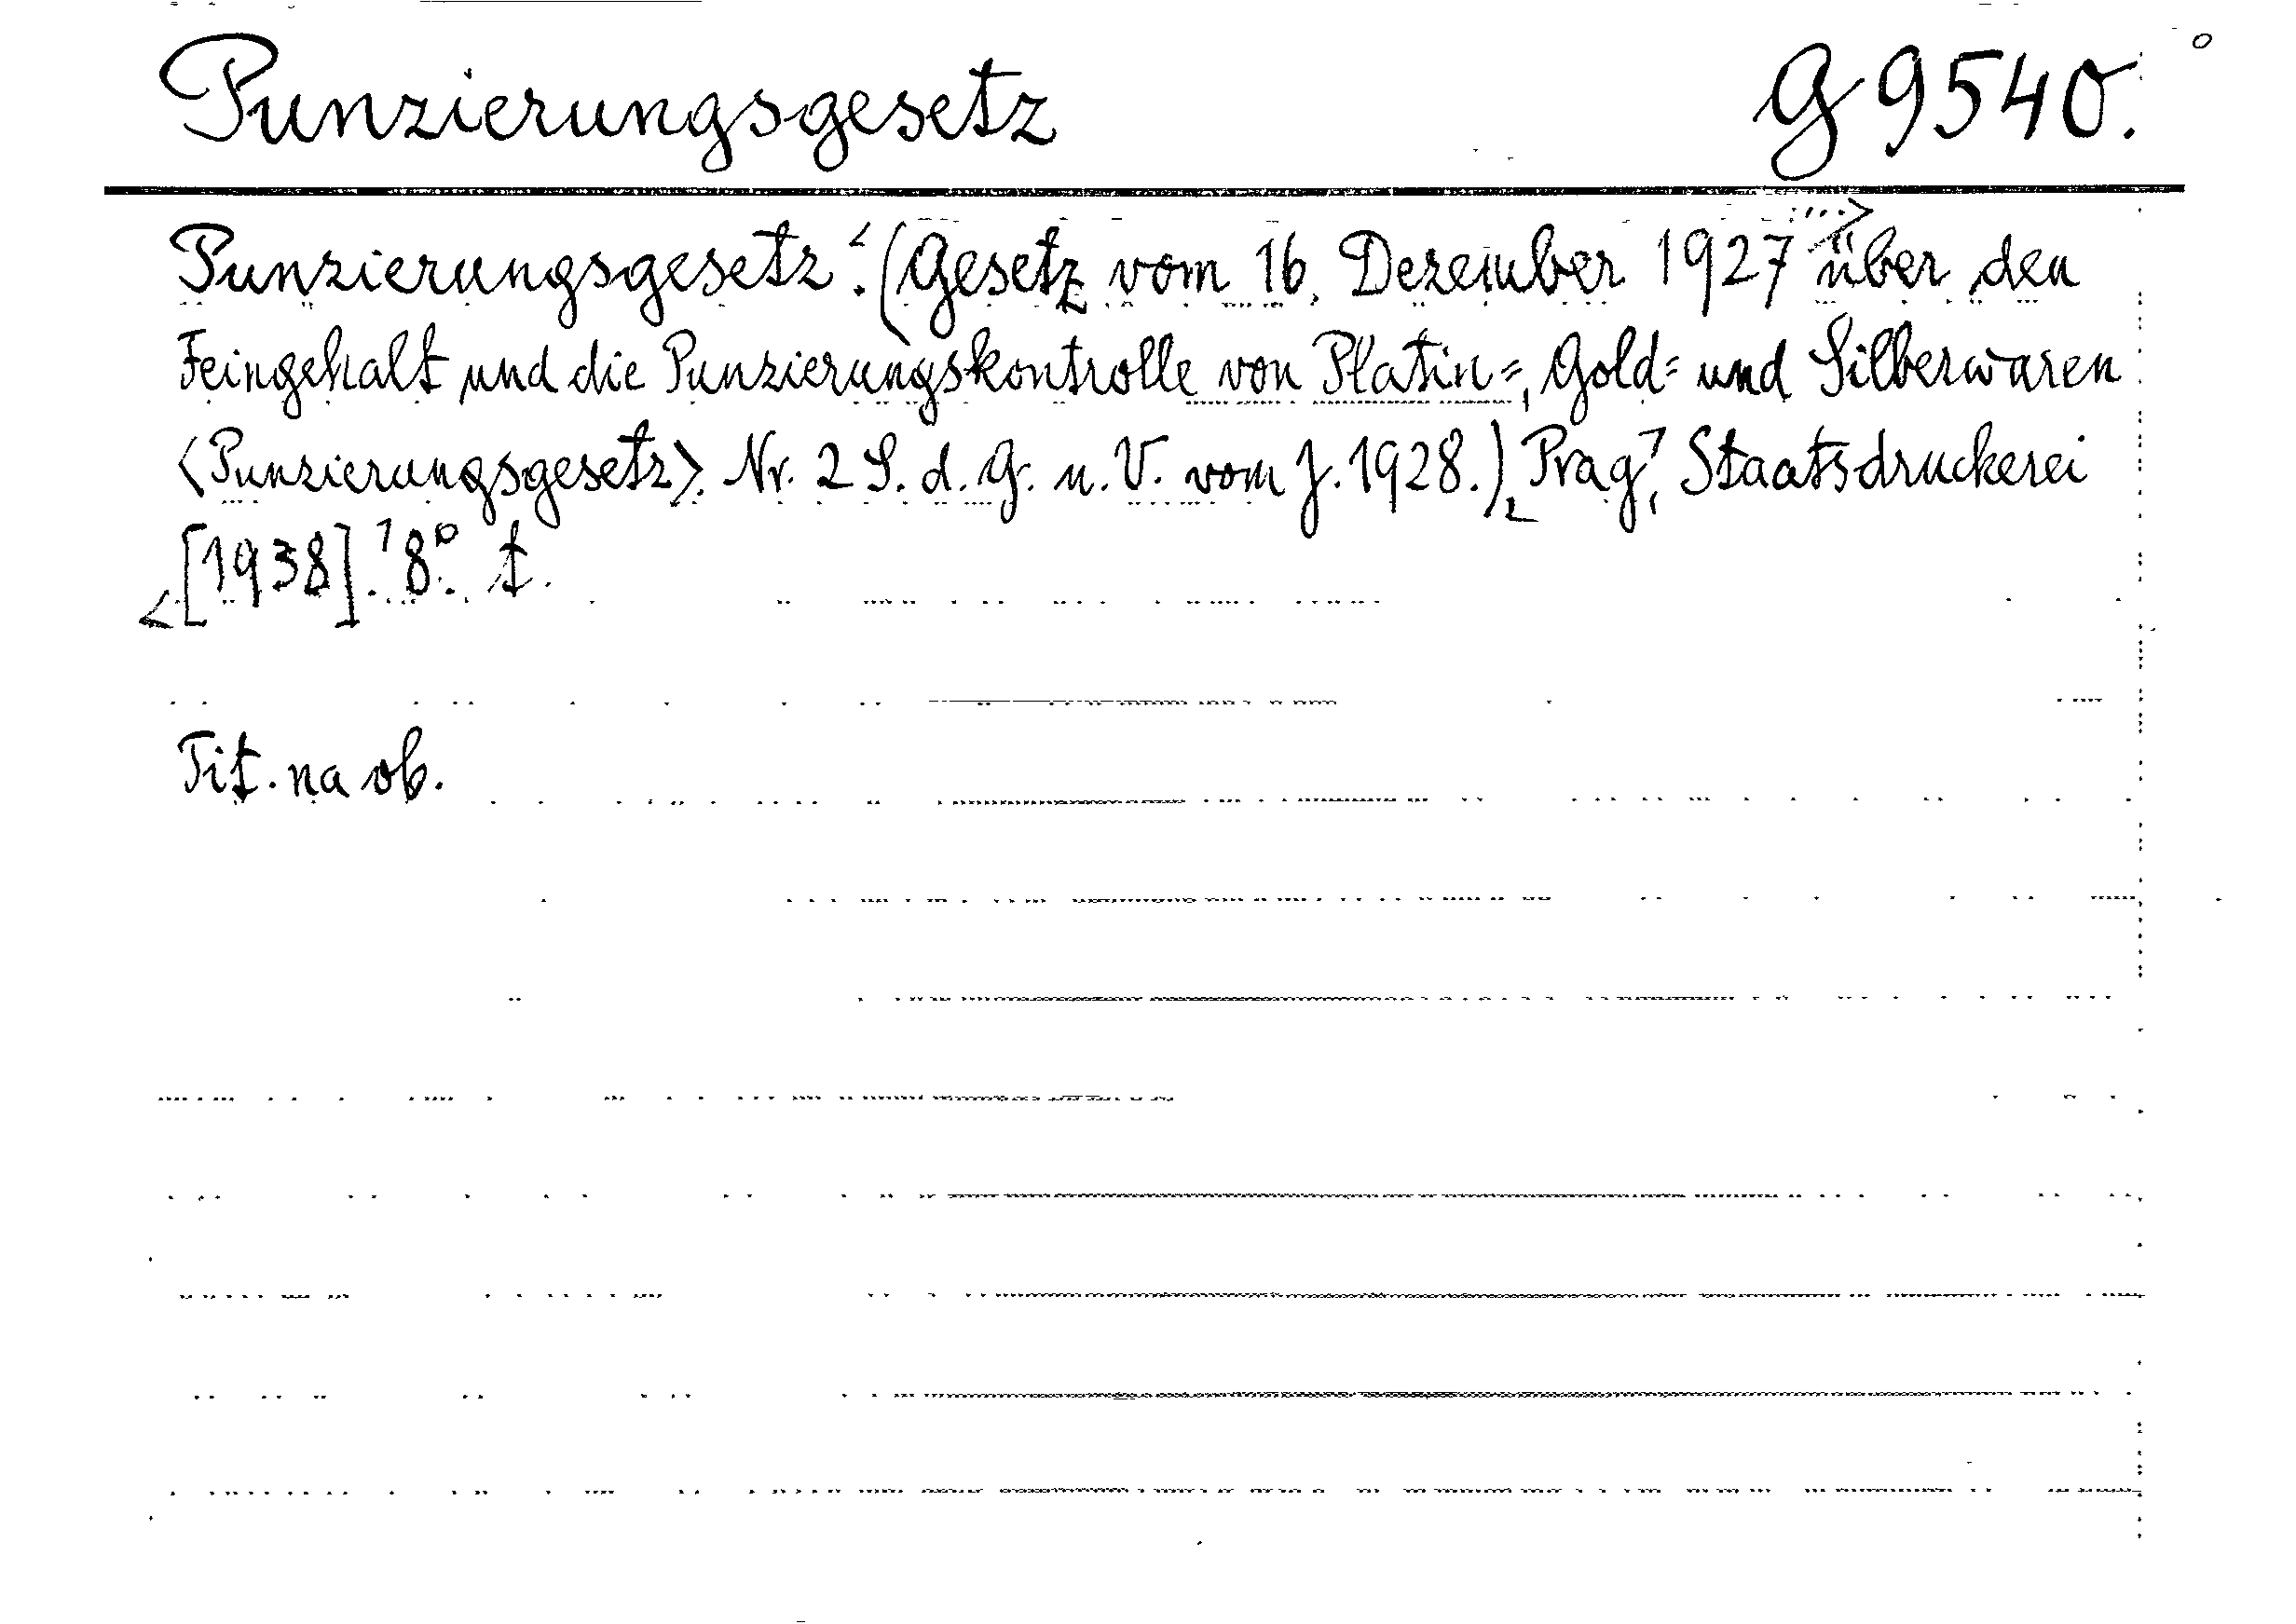 Punzierungsgesetz G 9540.
Punzierungsgesetz. (Gesetz vom 16. Dezember 1927 über den
Feingehalt und die Punzierungskontrolle von Platin=, Gold= und Silberwaren
<Punzierungsgesetz>. Nr. 2 S. d. G. u. V. vom J. 1928.) Prag, Staatsdruckerei
[1938]. 8°. t.
Tit. na ob.